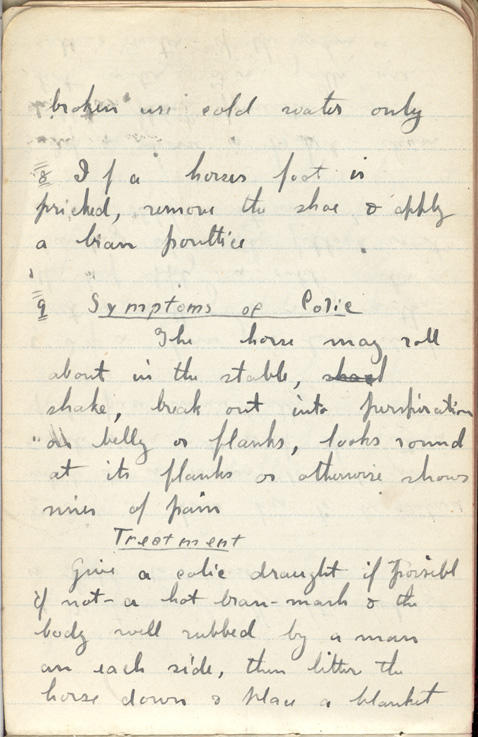 broken use cold water only
8 If a horses foot is
pricked, remove the shoe & apply
a bran poultice
9 Symptoms of Colic
The horse may roll
about in the stable,
shake, break out into perspiration
on belly or flanks, looks round
at its flanks or otherwise shows
signs of pain
Treatment
Give a colic draught if possibl
if not - a hot bran-mash & the
body well rubbed by a man
on each side, then litter the
horse down & place a blanket